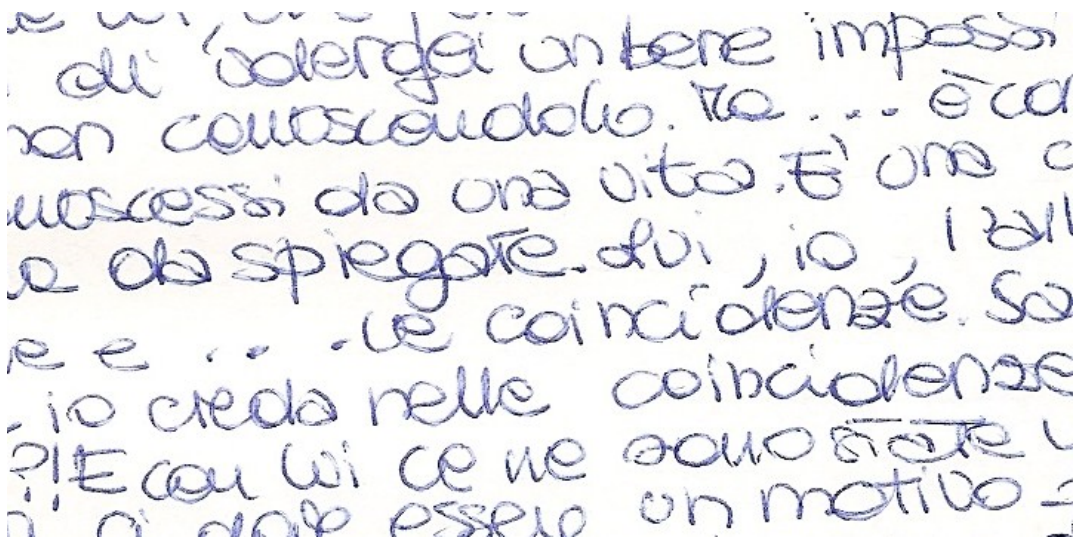 e lui, 
di volergli un bene impossi
non conoscendolo. Ma .... è co
noscessi da una vita. E' una c
a da spiegare. Lui, io, l'all
e e .... le coincidenze. Sa
io creda nelle coincidenze
?!! E con lui ce ne sono state
ci deve essere un motivo